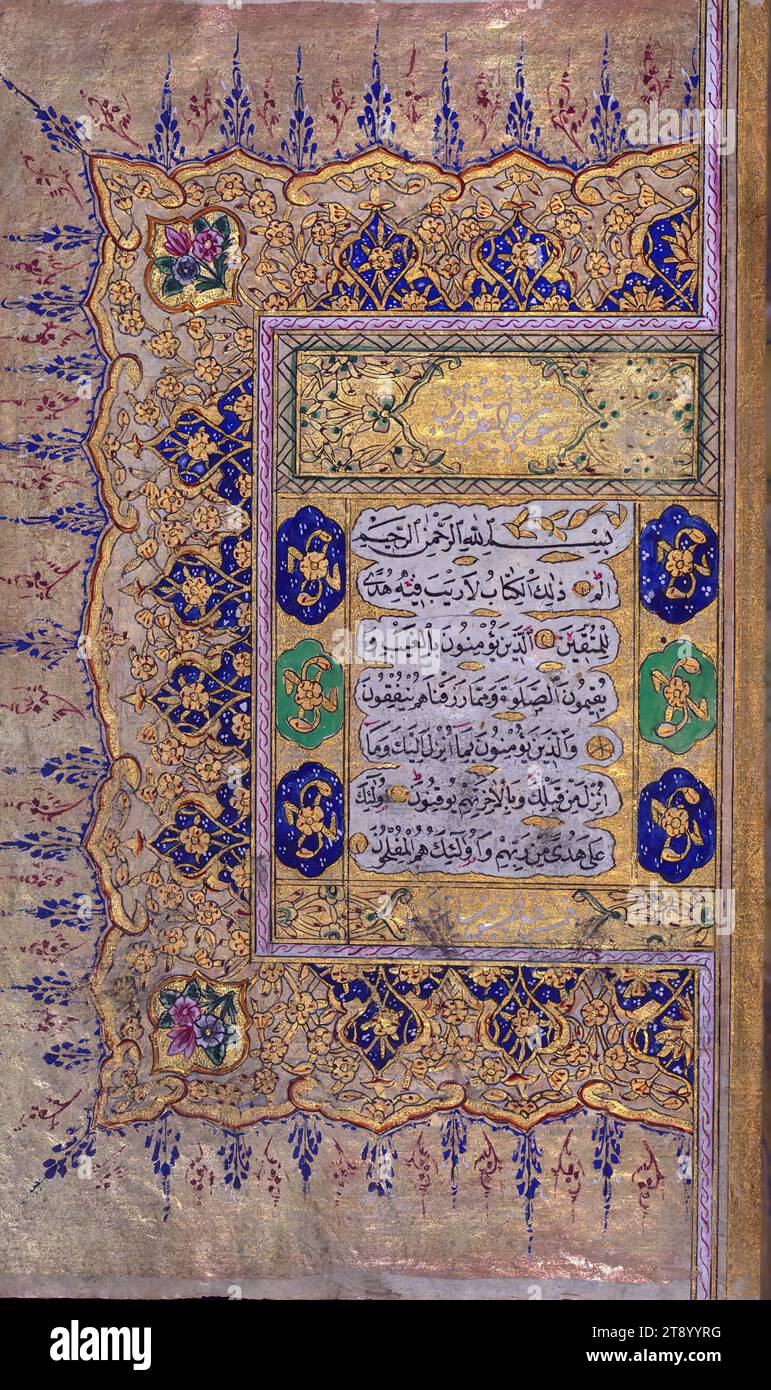 سورة البقرة
بِسْمِ اللهِ الرَّحْمٰنِ الرَّحِيْمِ
الٓمٓ ذٰلِكَ الْكِتَابُ لَا رَيْبَ فِيْهِ هُدًى
لِلْمُتَّقِيْنَ الَّذِيْنَ يُؤْمِنُوْنَ بِالْغَيْبِ وَ
يُقِيْمُوْنَ الصَّلٰوةَ وَمِمَّا رَزَقْنَاهُمْ يُنْفِقُوْنَ
وَالَّذِيْنَ يُؤْمِنُوْنَ بِمَا اُنْزِلَ اِلَيْكَ وَمَا
اُنْزِلَ مِنْ قَبْلِكَ وَبِالْاٰخِرَةِ هُمْ يُوْقِنُوْنَ اُولٰٓئِكَ
عَلٰى هُدًى مِنْ رَبِّهِمْ وَاُولٰٓئِكَ هُمُ الْمُفْلِحُوْنَ
alamy
alamy
Image ID: 2T8YYRG
www.alamy.com